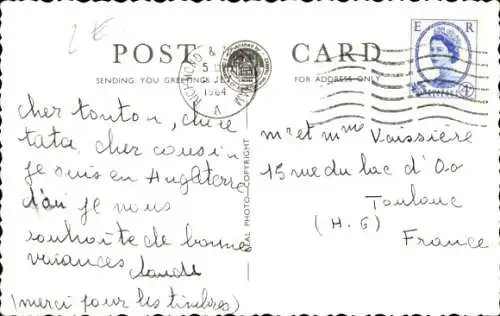 2€
POST CARD
SENDING YOU GREETINGS
FOR ADDRESS ONLY
E R
RICHMOND &
1964
REAL PHOTO—COPYRIGHT
cher tonton, chère
tata, cher cousin
je suis en Angleterre
d'où je vous
souhaite de bonnes
vacances
(merci pour les timbres)
Mr et Mme Vaissière
15 rue du lac d'Oo
Toulouse
(H.G)
France